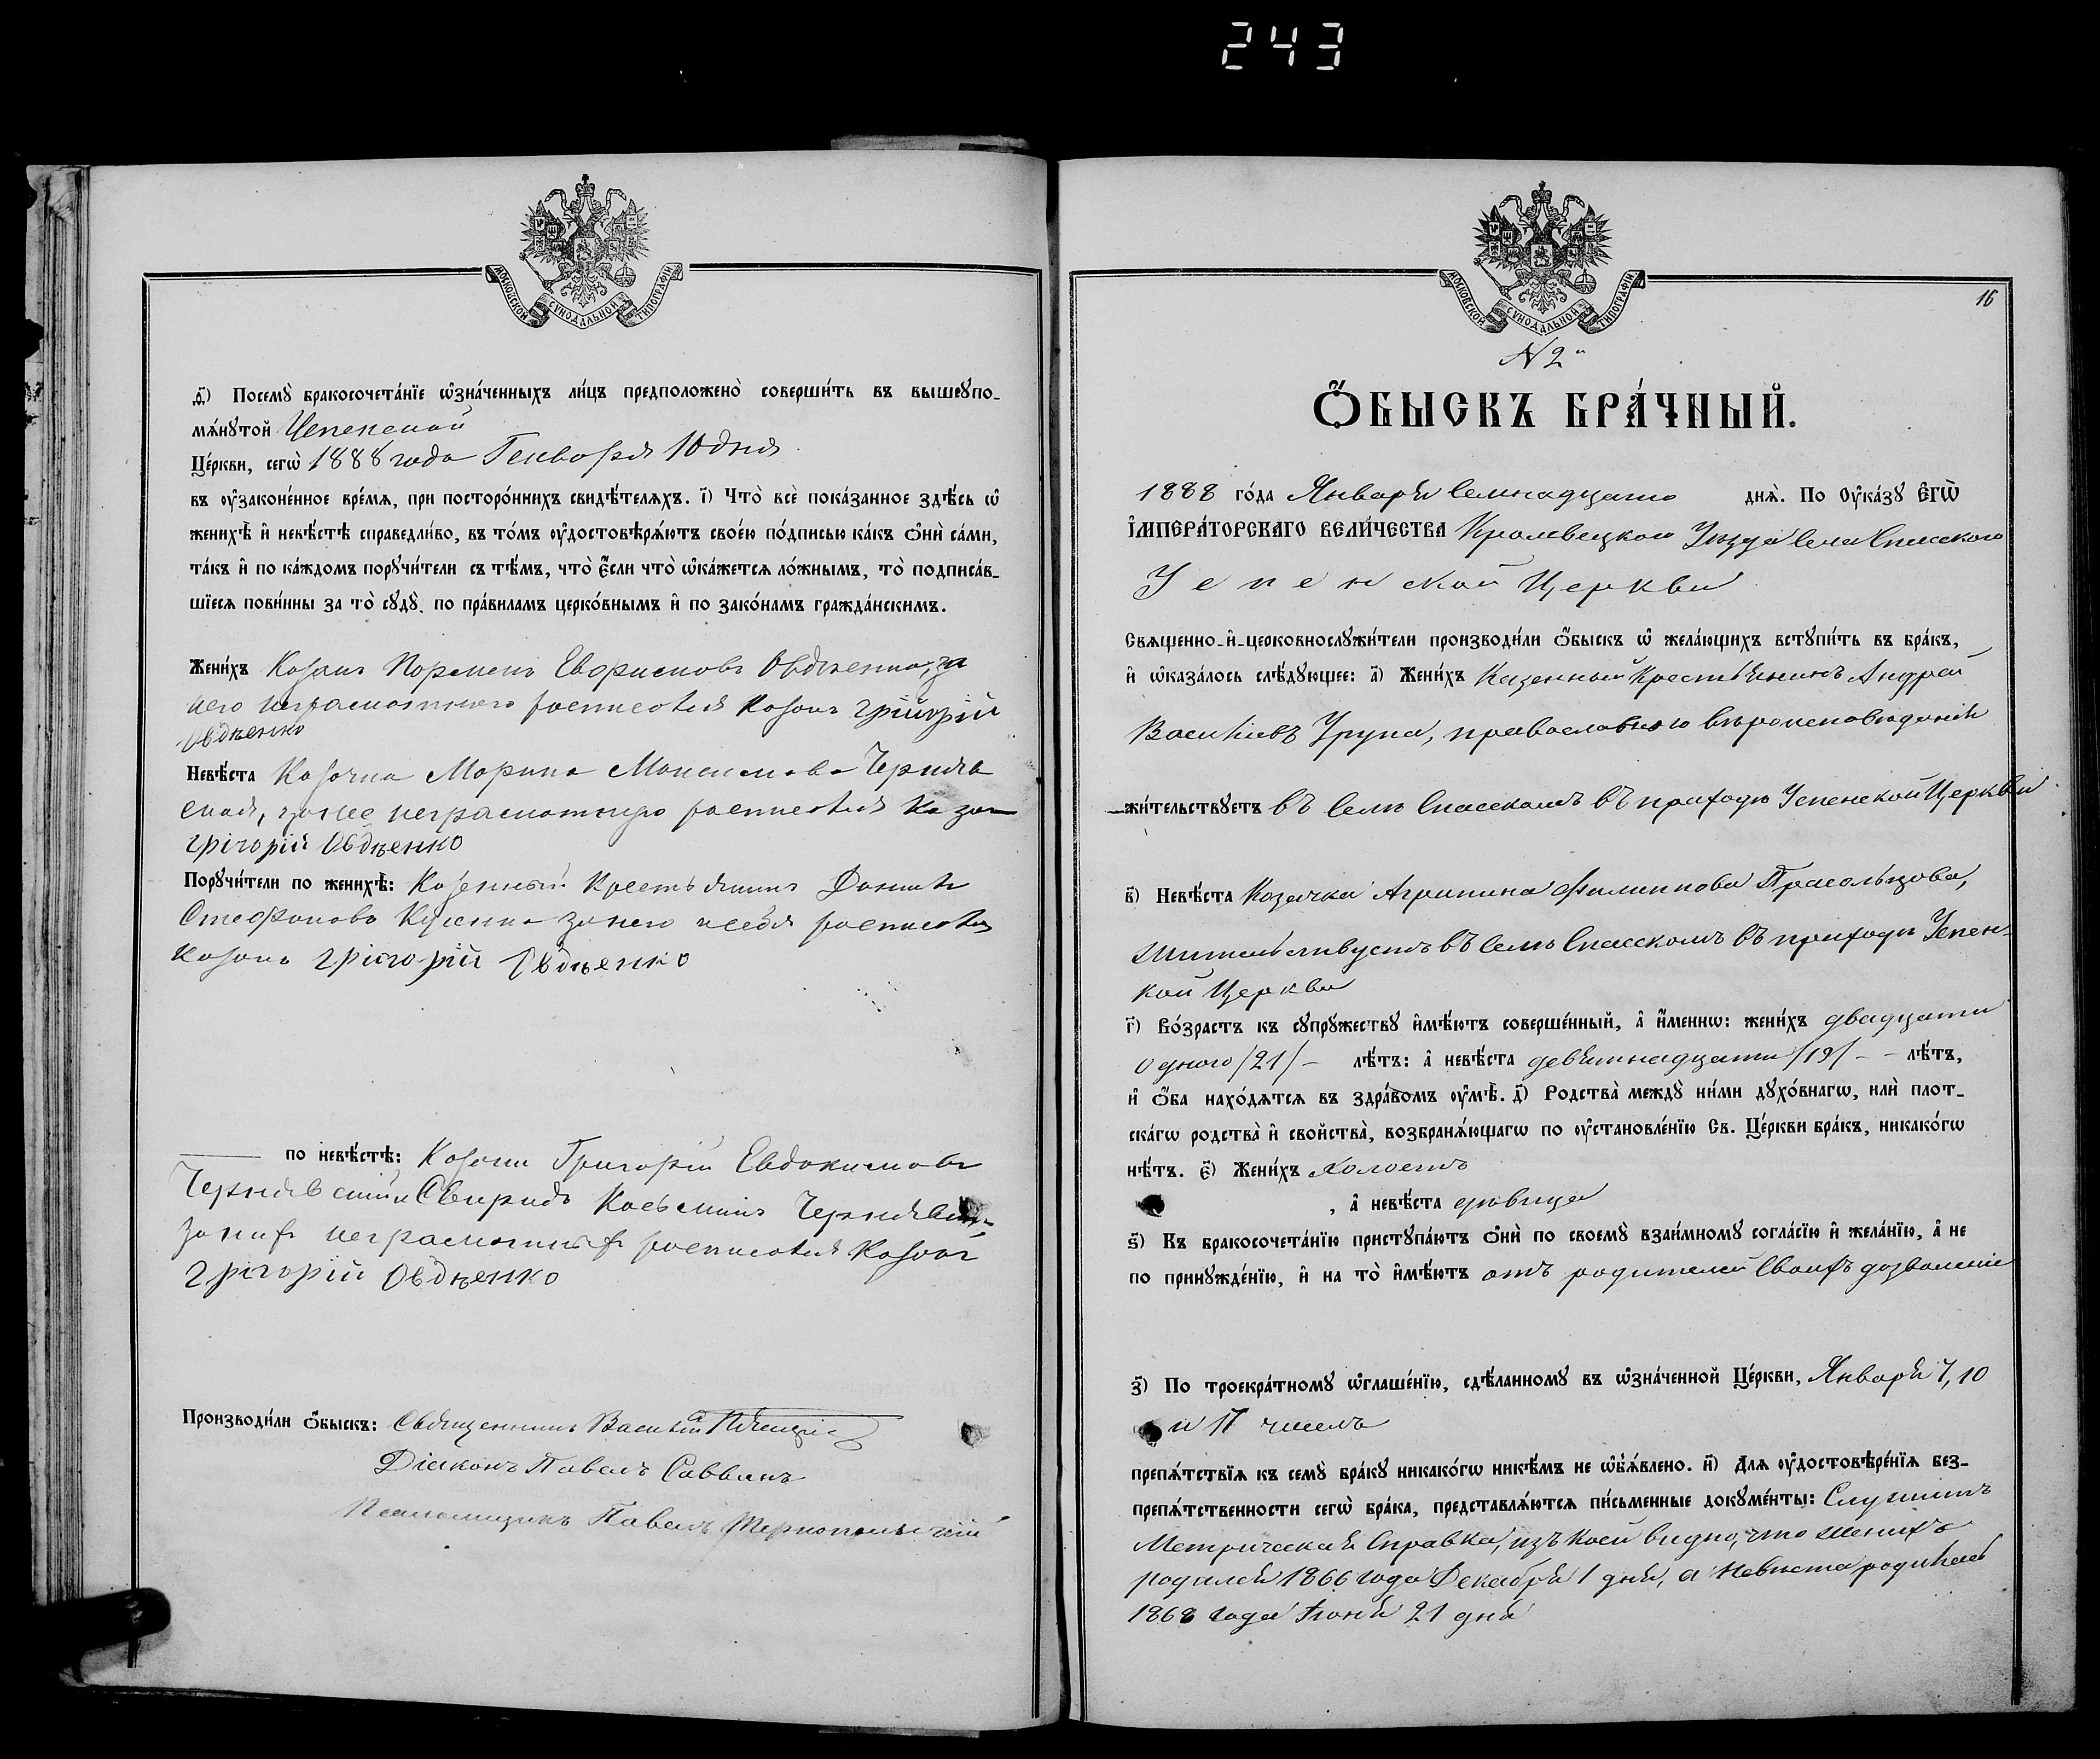 243
МОСКОВСКОЙ СУНОДАЛЬНОЙ ТИПОГРАФІИ
д҃) Посемꙋ̀ бракосочета́нїе ѡ҆зна́ченныхъ ли́цъ предположено̀ соверши́ть въ вышеꙋпо-
мѧ́нꙋтой Успенской
Це́ркви, сегѡ̀ 1888 года Генворя 10 дня
въ ᲂу҆законе́нное вре́мѧ, при посторо́ннихъ свидѣ́телѧхъ. і҃) Что̀ всѐ пока́занное здѣ́сь ѡ҆
женихѣ̀ и҆ невѣ́стѣ справедли́во, въ то́мъ ᲂу҆достовѣрѧ́ютъ свое́ю по́дписью ка́къ ѻ҆нѝ са́ми,
та́къ и҆ по ка́ждомъ порꙋчи́тели съ тѣ́мъ, что̀ є҆́сли что̀ ѡ҆ка́жетсѧ ло́жнымъ, то̀ подписа́в-
шїесѧ пови́нны за то̀ сꙋдꙋ̀ по пра́виламъ церко́внымъ и҆ по зако́намъ гражда́нскимъ.
Жени́хъ Козакъ Парменъ Овдѣенко, за
него неграмотного росписолся Козакъ Грігорій
Овдѣенко
Невѣ́ста Козачка Морина Максимова Чернявс
ская, за нее неграмотную росписолся Козак
Грігорій Овдѣенко
Порꙋчи́тели по женихѣ̀: Козенный Крестьянинъ Данiилъ
Стефановъ за него и себя росписолся
Козакъ Грігорій Овдѣенко
по невѣ́стѣ: Козаки Григорій Евдокимовъ
Чернявскій и Свиридъ Косьминъ Чернявскій
за них неграмотных росписолся Козак
Грігорій Овдѣенко
Производи́ли ѻ҆́быскъ: Священникъ Василій
Діаконъ Павелъ Саввинъ
Псаломщикъ Павелъ Тернопольскій
16
МОСКОВСКОЙ СУНОДАЛЬНОЙ ТИПОГРАФІИ
N 2й
Ѻ҆́БЫСКЪ БРА́ЧНЫЙ.
1888 го́да Января Семнадцато днѧ̀. По Оу҆ка́зꙋ Є҆ГѠ̀
І҆МПЕРА́ТОРСКАГО ВЕЛИ́ЧЕСТВА Кролевецкого Уѣзда Села Спасского
Успенской Церкви
Свѧщенно-и҆-церковнослꙋжи́тели производи́ли ѻ҆́быскъ ѡ҆ жела́ющихъ встꙋпи́ть въ бра́къ,
и҆ ѡ҆каза́лось слѣ́дꙋющее: а҃) Жени́хъ Казенный Крестьянинъ Андрей
Васильевъ Урупа, православного вѣроисповѣданія
жи́тельствꙋетъ въ Селѣ Спасскомъ въ приходѣ Успенской Церкви
в҃) Невѣ́ста Козачка Агрипина Филиппова Прасольцова,
жительствуетъ въ Селѣ Спасскомъ въ приходѣ Успен-
кой Церкви
г҃) Во́зрастъ къ сꙋпрꙋжествꙋ и҆мѣ́ютъ соверше́нный, а҆ и҆́меннѡ: жени́хъ двадцати
одного /21/ – лѣ́тъ: а҆ невѣ́ста девятнадцати /19/ – – лѣ́тъ,
и҆ ѻ҆́ба нахо́дѧтсѧ въ здра́вомъ ᲂу҆мѣ̀. д҃) Родства̀ междꙋ̀ ни́ми дꙋхо́внагѡ, илѝ плот-
ска́гѡ родства̀ и҆ свойства̀, возбранѧ́ющагѡ по ᲂу҆становле́нїю Св. Це́ркви бра́къ, никако́гѡ
нѣ́тъ. є҃) Жени́хъ холостъ
, а҆ невѣ́ста дѣвица
ѕ҃) Къ бракосочета́нїю пристꙋпа́ютъ ѻ҆нѝ по своемꙋ̀ взаи́мномꙋ согла́сїю и҆ жела́нїю, а҆ не
по принꙋжде́нїю, и҆ на то̀ и҆мѣ́ютъ отъ родителей Своихъ дозволеніе
з҃) По троекра́тномꙋ ѡ҆глаше́нїю, сдѣ́ланномꙋ въ ѡ҆зна́ченной Це́ркви, Января 7, 10
и 17 чиселъ
препѧ́тствїѧ къ семꙋ̀ бра́кꙋ никако́гѡ никѣ́мъ не ѡ҆б̾ѧ́влено. и҃) Длѧ ᲂу҆достовѣре́нїѧ без-
препѧ́тственности сегѡ̀ бра́ка, представлѧ́ютсѧ пи́сьменные докꙋме́нты: Служитъ
Метрическая Справка, изъ коей видно, что женихъ
родился 1866 года Декабря 1 дня, а Невѣста родилась
1868 года Іюня 21 дня